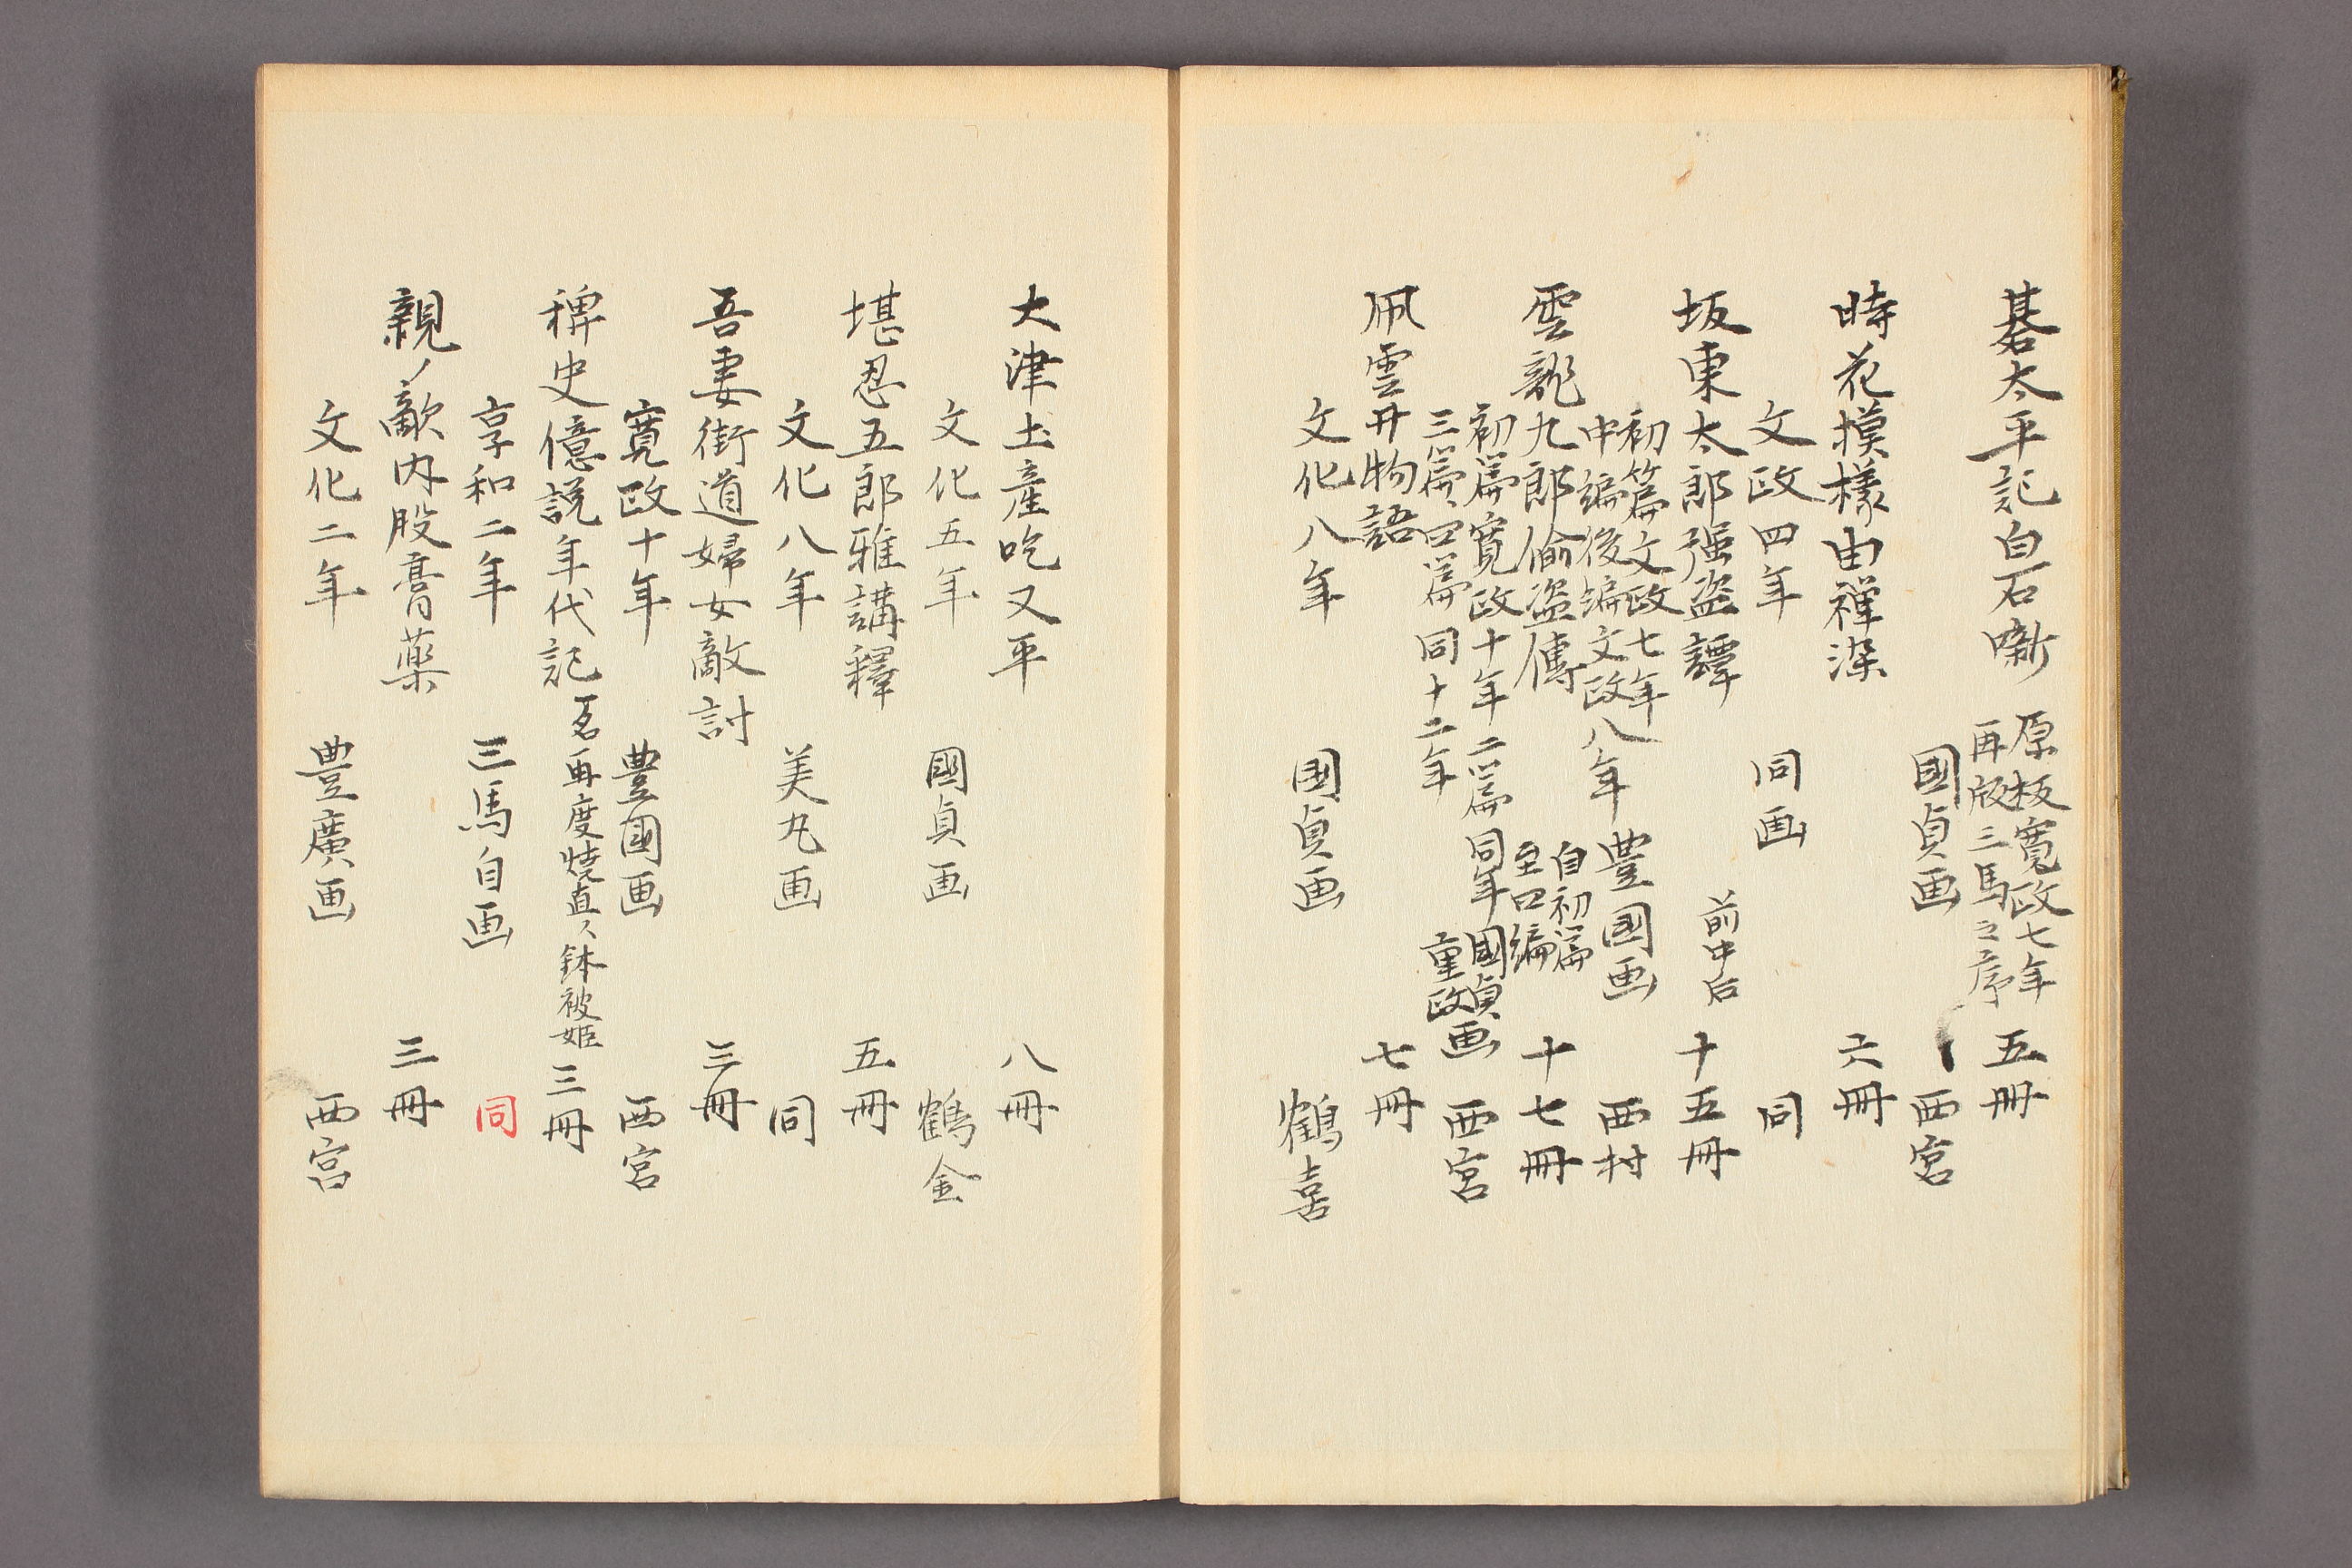 碁太平記白石噺 原板寛政七年 再版三馬之序 五冊
國貞画 西宮
時花摸様由禅染 六冊
文政四年 同画 同
坂東太郎強盗譚 前中后 十五冊
初篇文政七年
中編後編文政八年 豊國画 西村
雲龍九郎偷盗傳 自初篇 至四編 十七冊
初篇寛政十年 二篇同年 國貞画
三篇、四篇 同十二年 重政 西宮
凧雲井物語 七冊
文化八年 國貞画 鶴喜
大津土產吃又平 八冊
文化五年 國貞画 鶴金
堪忍五郎雅講釋 五冊
文化八年 美丸画 同
吾妻街道婦女敵討 三冊
寛政十年 豊國画 西宮
稗史億説年代記 一名再度焼直ノ鉢被姫 三冊
享和二年 三馬自画 同
親ノ敵内股膏薬 三冊
文化二年 豊廣画 西宮